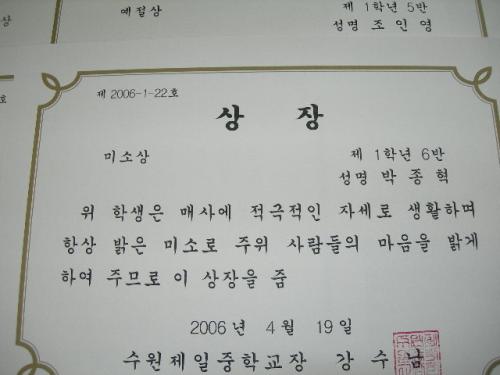 상
예절상
제 1학년 5반
성명 조인영
호
제 2006-1-22호
상 장
미소상
제 1학년 6반
성명 박종혁
위 학생은 매사에 적극적인 자세로 생활하며
항상 밝은 미소로 주위 사람들의 마음을 밝게
하여 주므로 이 상장을 줌
2006 년 4 월 19 일
수원제일중학교장 강수남